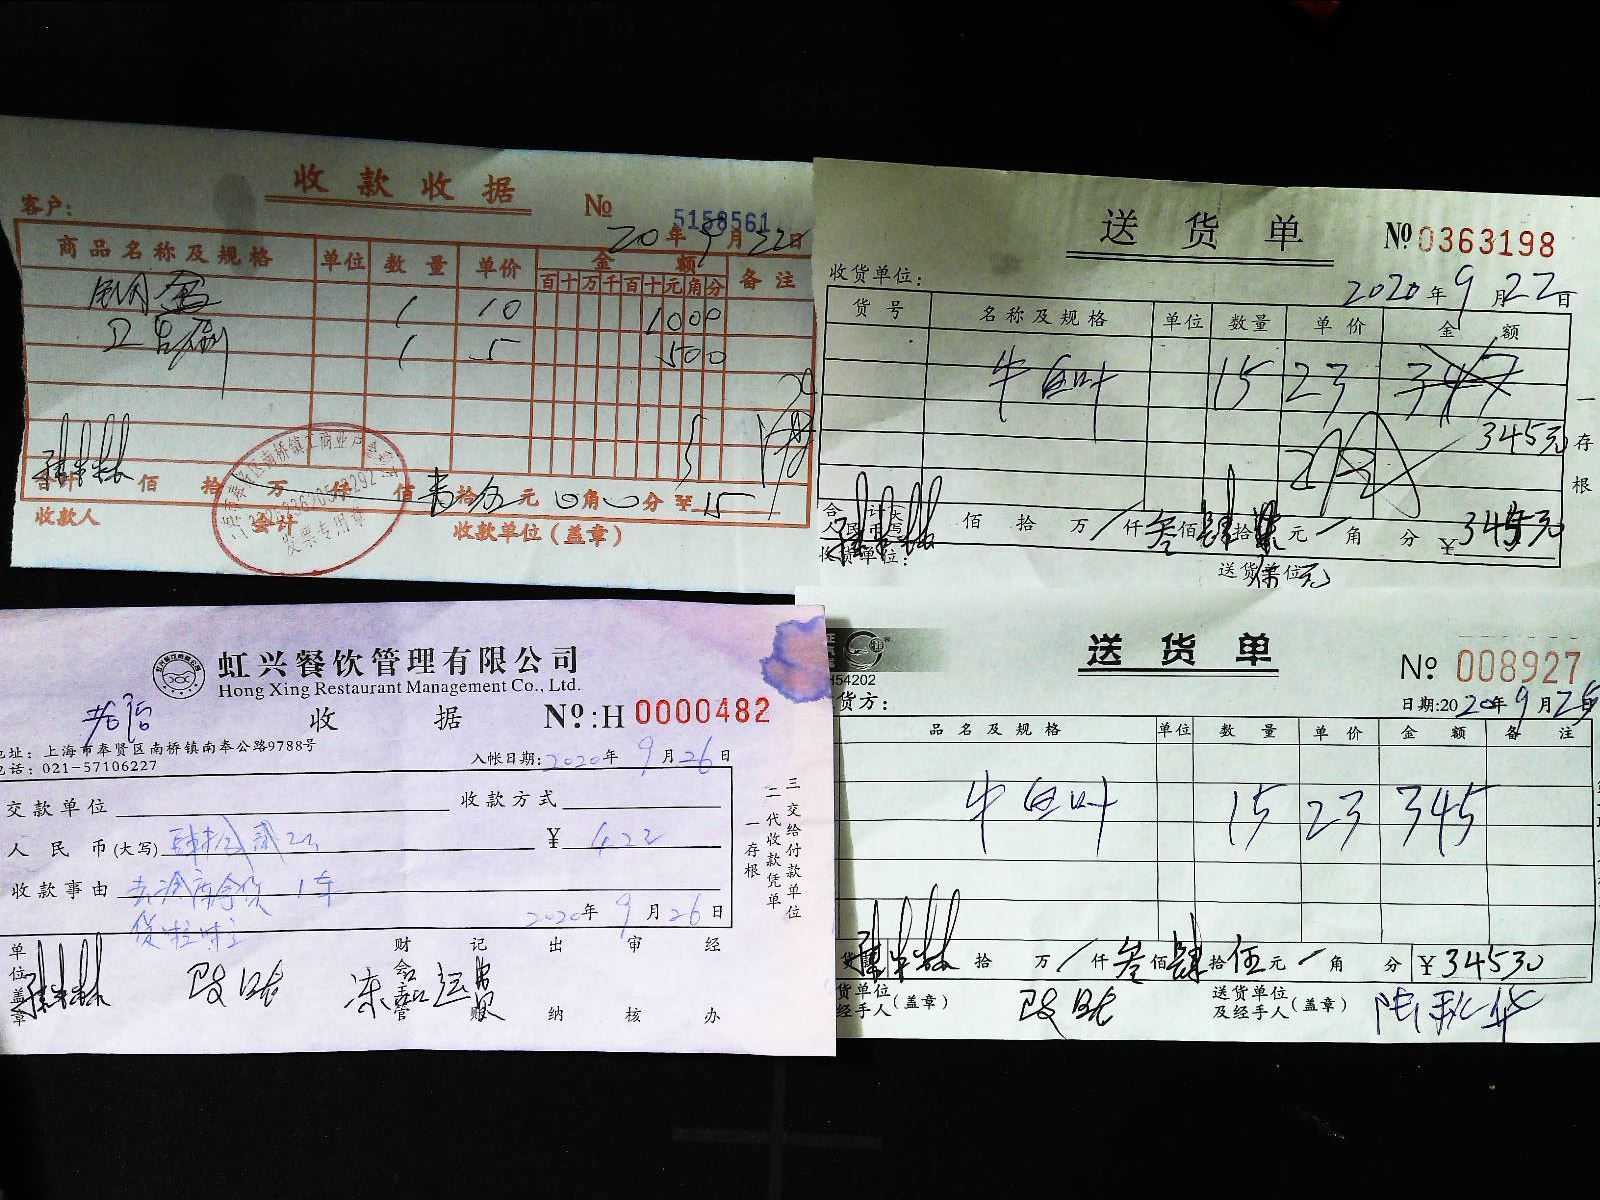 收款收据
客户:
№ 5158561
20年9月22日
商品名称及规格 单位 数量 单价 金额 备注
百十万千百十元角分
1 10 1000
1 5 500
合计 佰 拾 万 仟 佰 壹拾伍元〇角〇分 ¥15
收款人 会计 收款单位(盖章)
发票专用章
送货单
№ 0363198
收货单位:
2020年9月22日
货号 名称及规格 单位 数量 单价 金额
牛百叶 15 23 347
345元
一存根
合计大写人民币 佰 拾 万 / 仟 叁佰肆拾 元 角 分 ¥345元
伍元
收货单位: 送货单位
虹兴餐饮管理有限公司
Hong Xing Restaurant Management Co., Ltd.
收据
№:H 0000482
地址: 上海市奉贤区南桥镇南奉公路9788号
电话: 021-57106227
入帐日期: 2020年9月26日
交款单位 收款方式
人民币(大写) ¥ 422
收款事由 去冷库拿货 1车
货啦啦
2020年9月26日
一存根
二代收款凭单
三交给付款单位
单位盖章 财会主管 记账 出纳 审核 经办
送货单
№ 008927
H54202
货方:
日期:2020年9月25
品名及规格 单位 数量 单价 金额 备注
牛百叶 15 23 345
拾 万 / 仟 叁佰肆拾伍元 角 分 ¥34530
货单位经手人(盖章) 送货单位及经手人(盖章)
陆秋华